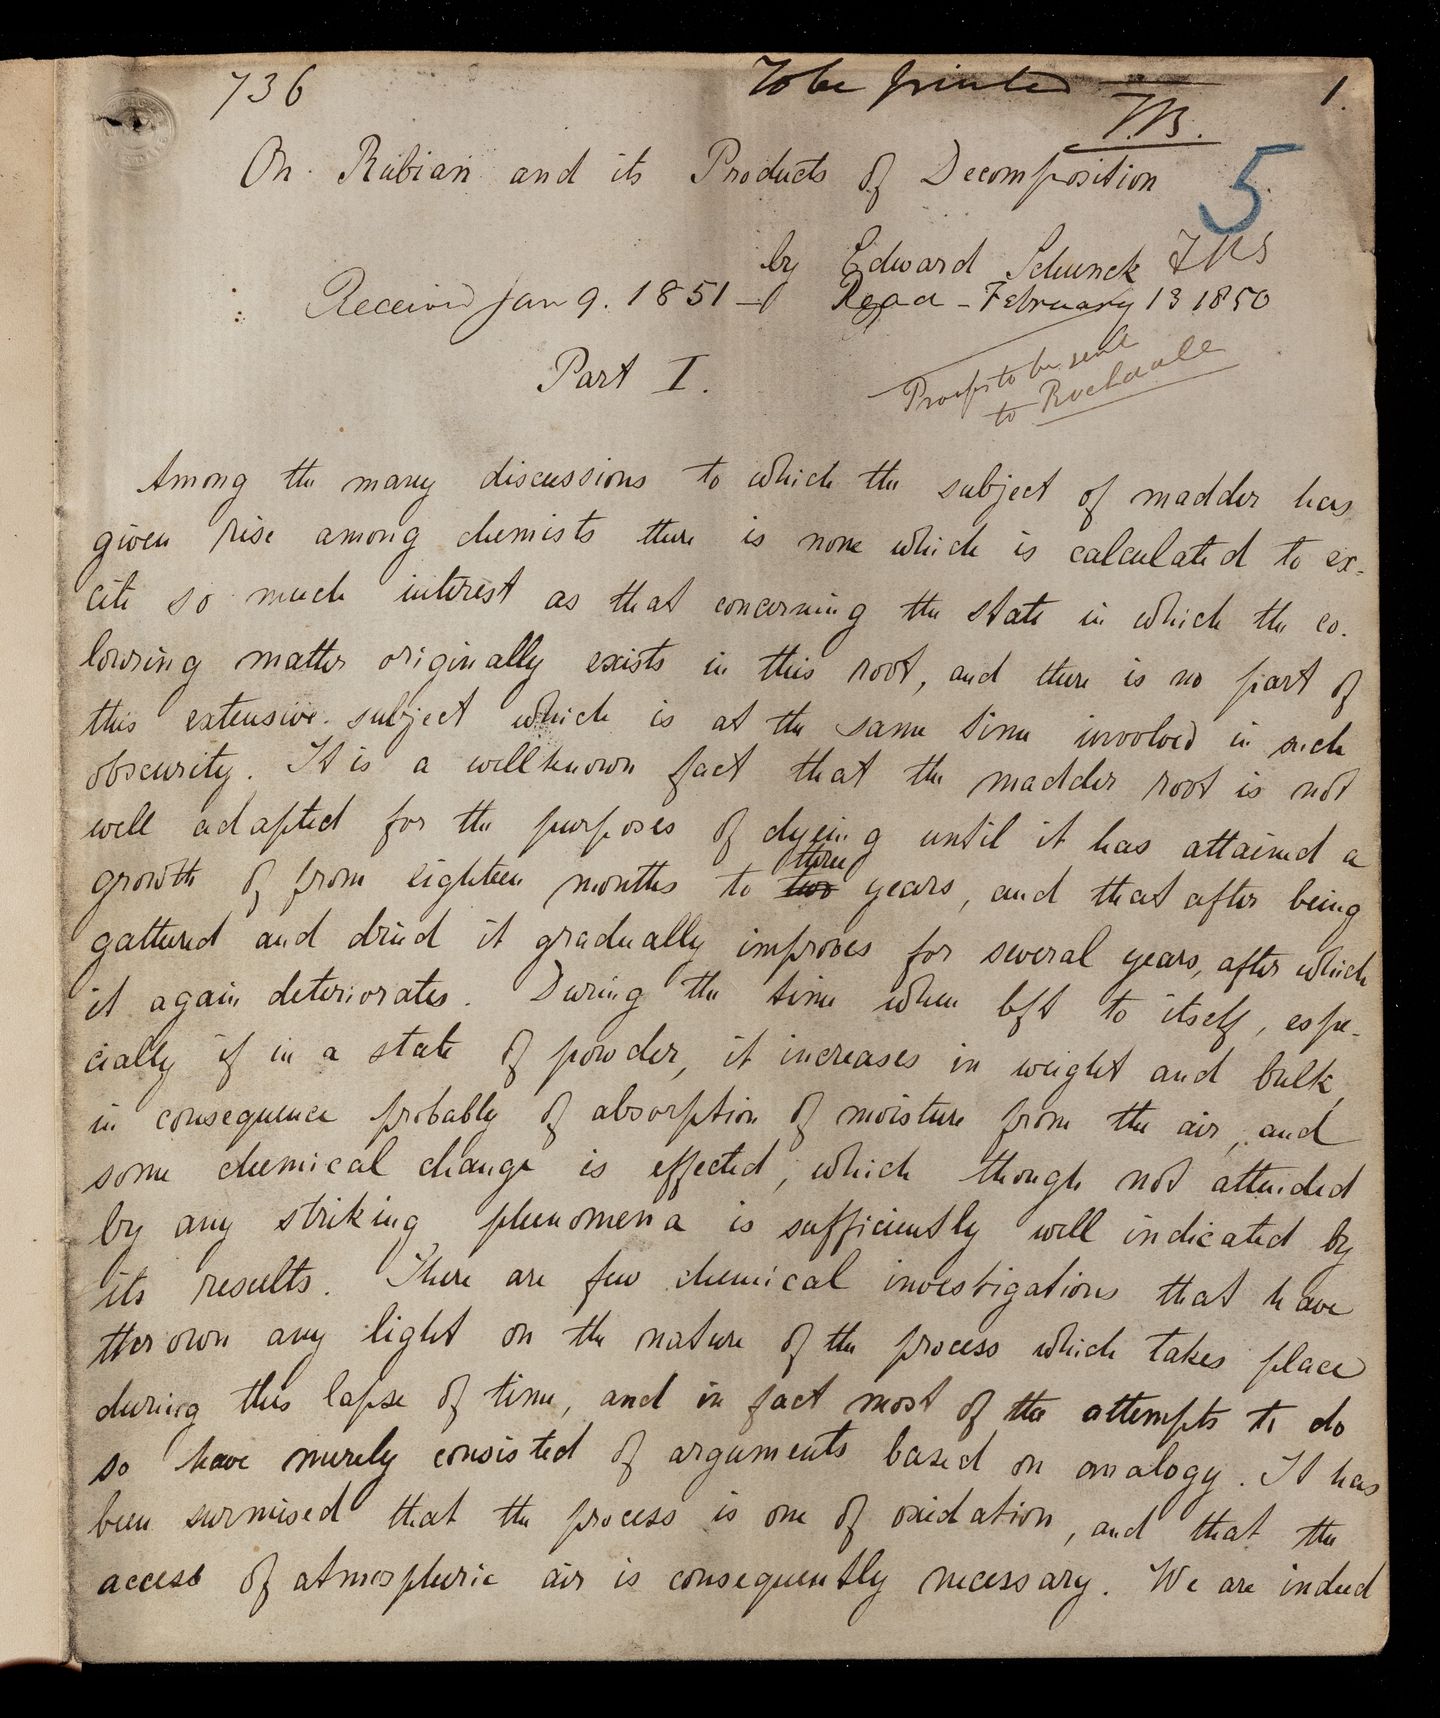 736
To be printed
T.B.
1.
5
On Rubian and its Products of Decomposition
by Edward Schunck FRS
Received Jan 9. 1851 – Read – February 13 1850
Proofs to be sent
to Rochdale
Part I.
Among the many discussions to which the subject of madder has
given rise among chemists there is none which is calculated to ex-
cite so much interest as that concerning the state in which the co-
louring matter originally exists in this root, and there is no part of
this extensive subject which is at the same time involved in such
obscurity. It is a wellknown fact that the madder root is not
well adapted for the purposes of dyeing until it has attained a
three
growth of from eighteen months to two years, and that after being
gathered and dried it gradually improves for several years, after which
it again deteriorates. During the time when left to itself, espe-
cially if in a state of powder, it increases in weight and bulk,
in consequence probably of absorption of moisture from the air, and
some chemical change is effected, which though not attended
by any striking phenomena is sufficiently well indicated by
its results. There are few chemical investigations that have
thrown any light on the nature of the process which takes place
during this lapse of time, and in fact most of the attempts to do
so have merely consisted of arguments based on analogy. It has
been surmised that the process is one of oxidation, and that the
access of atmospheric air is consequently necessary. We are indeed